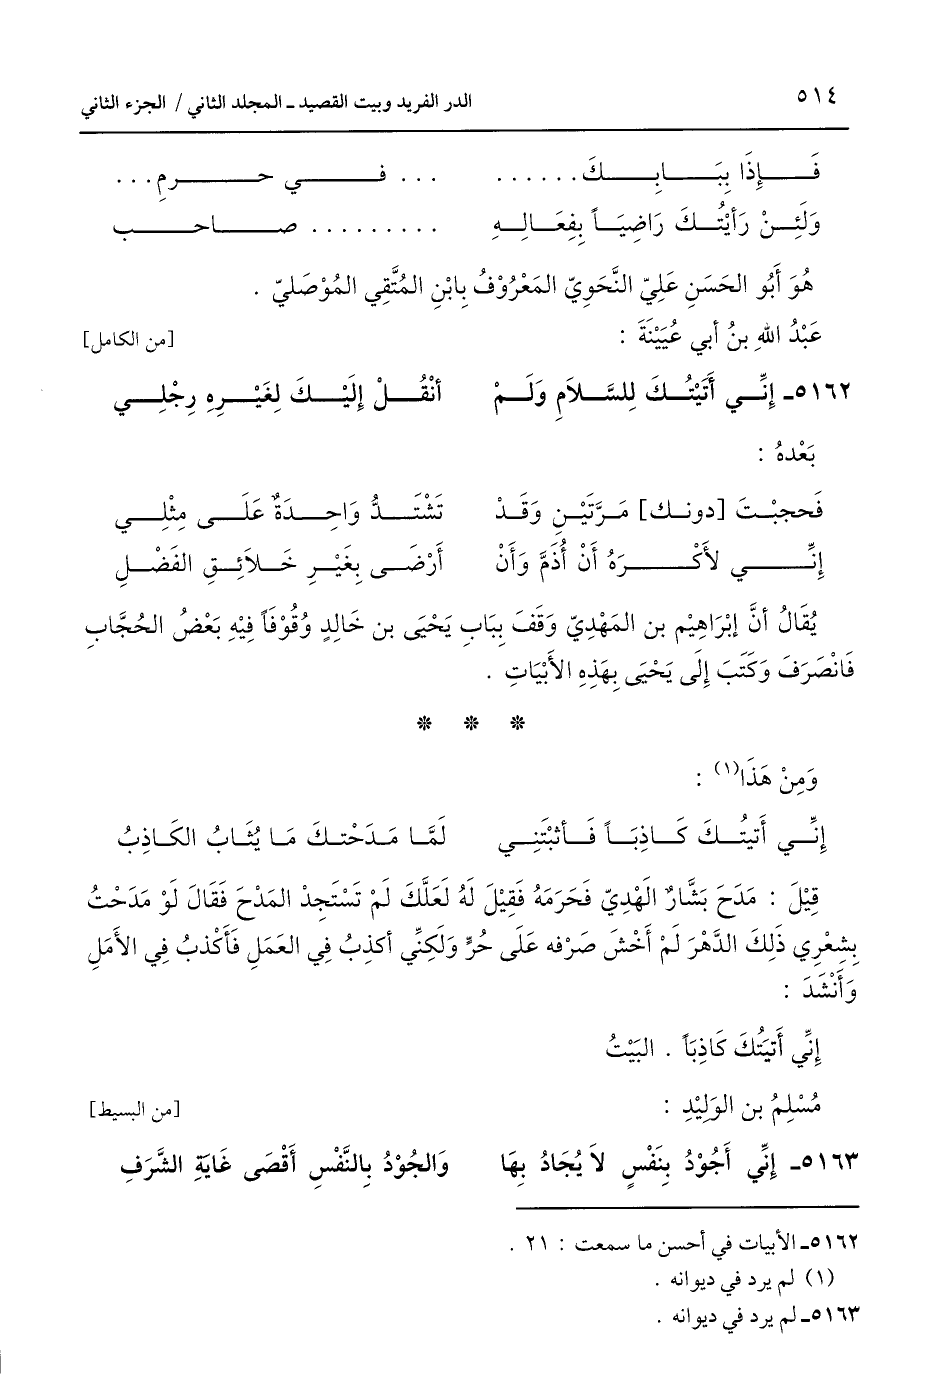 ٥١٤ الدر الفريد وبيت القصيد ـ المجلد الثاني / الجزء الثاني
فَإِذَا بِبَابِكَ . . . . . . . . . في حرمِ . . .
وَلَئِنْ رَأَيْتُكَ رَاضِيَاً بِفِعَالِهِ . . . . . . . . . صاحب
هُوَ أَبُو الحَسَنِ عَلِيّ النَّحَوِيّ المَعْرُوْفُ بِابْنِ المُتَّقِي المُوْصَلِيّ .
عَبْدُ اللهِ بنُ أَبي عُيَيْنَةَ : [من الكامل]
٥١٦٢ـ إِنِّي أَتَيْتُكَ لِلسَّلاَمِ وَلَمْ أَنْقُلْ إِلَيْكَ لِغَيْرِهِ رِجْلِي
بَعْدهُ :
فَحجبْتَ [دونك] مَرَّتَيْنِ وَقَدْ تَشْتَدُّ وَاحِدَةٌ عَلَى مِثْلِي
إِنِّي لأَكْرَهُ أَنْ أُذَمَّ وَأَنْ أَرْضَى بِغَيْرِ خَلاَئِقِ الفَضْلِ
يُقَالُ أَنَّ إِبْرَاهِيْم بن المَهْدِيّ وَقَفَ بِبَابِ يَحْيَى بن خَالِدٍ وُقُوْفَاً فِيْهِ بَعْضُ الحُجَّابِ
فَانْصَرَفَ وَكَتَبَ إِلَى يَحْيَى بِهَذِهِ الأَبْيَاتِ .
* * *
وَمِنْ هَذَا(١) :
إِنِّي أَتيتُكَ كَاذِبَاً فَأثبْتَنِي لَمَّا مَدَحْتكَ مَا يُثَابُ الكَاذِبُ
قِيْلَ : مَدَحَ بَشَّارٌ الْهْدِيّ فَحَرَمَهُ فَقِيْلَ لَهُ لَعَلَّكَ لَمْ تَسْتَجِدْ المَدْحَ فَقَالَ لَوْ مَدَحْتُ
بِشِعْرِي ذَلِكَ الدَّهْرَ لَمْ أَخْشَ صَرْفه عَلَى حُرٍّ وَلَكِنِّي أكذِبُ فِي العَمَلِ فَأَكْذبُ فِي الأَمَلِ
وَأَنْشَدَ :
إِنِّي أَتيَتُكَ كَاذِبَاً . البَيْتُ
مُسْلِمُ بن الوَلِيْدِ : [من البسيط]
٥١٦٣ـ إِنِّي أَجُوْدُ بِنَفْسٍ لاَ يُجَادُ بِهَا وَالجُوْدُ بِالنَّفْسِ أَقْصَى غَايَةِ الشَّرَفِ
٥١٦٢ـ الأبيات في أحسن ما سمعت : ٢١ .
(١) لم يرد في ديوانه .
٥١٦٣ـ لم يرد في ديوانه .